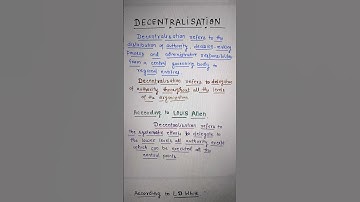 DECENTRALISATION
Decentralisation refers to the
distribution of authority, decision-making
process and administrative responsibilities
from a central governing body to
regional entities.
Decentralisation refers to delegation
of authority throughout all the levels
of the organisation
According to LOUIS Allen
Decentralisation refers to
the systematic efforts to delegate to
the lower levels all authority
which can be exercised at the
central points.
According to L.D White